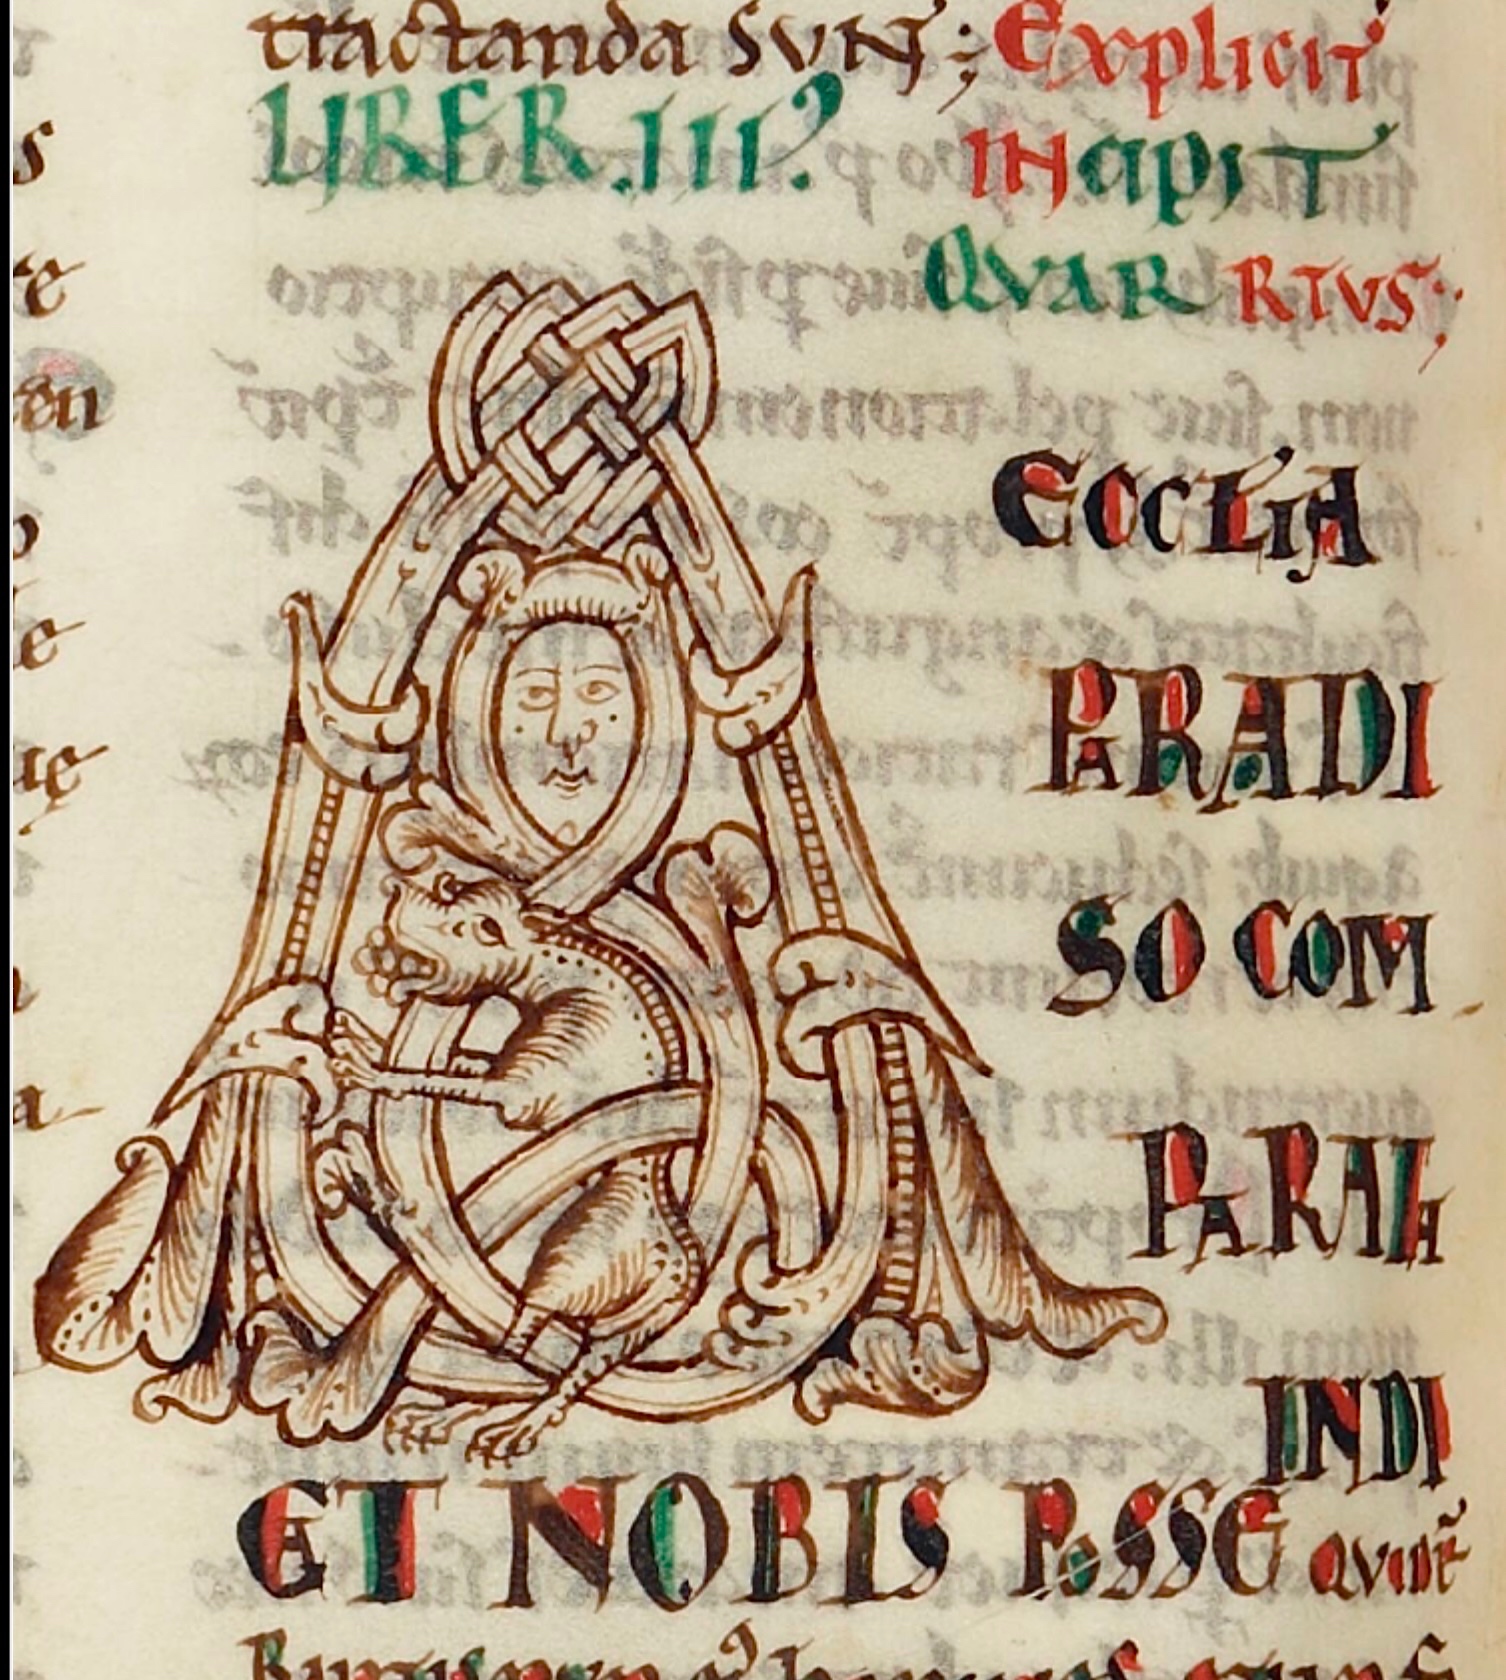 tractanda SVNT; Explicit
LIBER .III. INcipiT
QVARRTVS;
A
ECCLIA
PARADI
SO COM
PARATA
INDI
CET NOBIS POSSE QVIDĒ